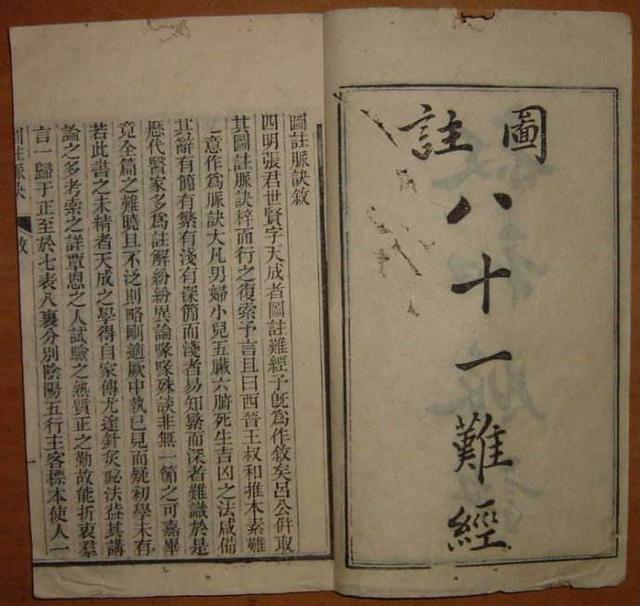 圖註
八十一難經
圖註脈訣敘
四明張君世賢字天成者圖註難經予旣爲作敘矣呂公併取
其圖註脈訣梓而行之復索予言且曰西晉王叔和推本素難
之意作爲脈訣大凡男婦小兒五臟六腑死生吉凶之法咸備
其辭有簡有繁有淺有深簡而淺者易知繁而深者難識於是
歷代醫家多爲註解紛紛異論喙喙殊談非無一節之可嘉畢
竟全篇之難曉且不泛則略剛適厥中執已見而疑初學未有
若此書之未精者天成之學得自家傳尤達針炙祕法益其講
論之多考索之詳覃思之人試驗之熟質正之勤故能折衷羣
言一歸于正至於七表八裏分別陰陽五行主客標本使人一
圖註脈訣 敘 一